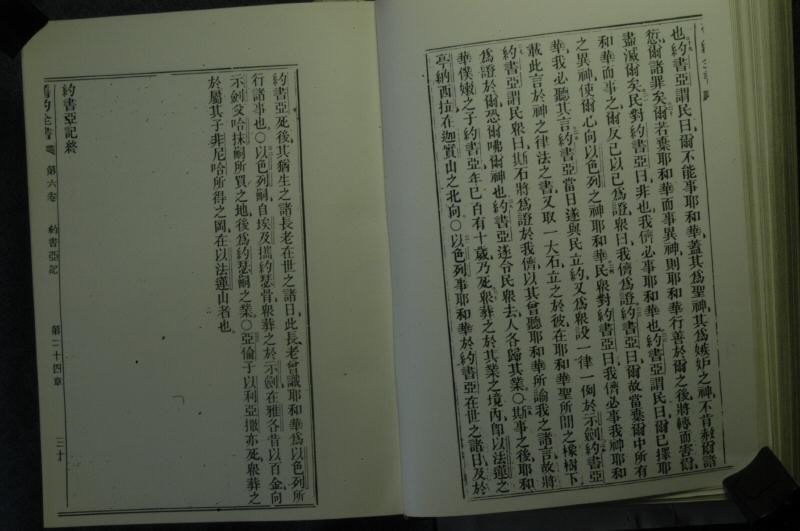 也約書亞謂民曰爾不能事耶和華蓋其爲聖神其爲嫉妒之神不肯赦爾諸
愆爾諸罪矣爾若棄耶和華而事異神則耶和華行善於爾之後將轉而害爾
盡滅爾矣民對約書亞曰非也我儕必事耶和華也約書亞謂民曰爾已擇耶
和華而事之爾反己以己爲證衆曰我儕爲證約書亞曰爾故當棄爾中所有
之異神使爾心向以色列之神耶和華民衆對約書亞曰我儕必事我神耶和
華我必聽其言約書亞當日遂與民立約又爲衆設一律一例於示劍約書亞
載此言於神之律法之書又取一大石立之於彼在耶和華聖所間之橡樹下
約書亞謂民衆曰斯石將爲證於我儕以其曾聽耶和華所諭我之諸言故將
爲證於爾恐爾咈爾神也約書亞遂令民衆去人各歸其業〇斯事之後耶和
華僕嫩之子約書亞年已百有十歲乃死衆葬之於其業之境內卽以法蓮之
亭納西拉在迦實山之北向〇以色列事耶和華於約書亞在世之諸日及於
約書亞死後其猶生之諸長老在世之諸日此長老曾識耶和華爲以色列所
行諸事也〇以色列嗣自埃及攜約瑟骨衆葬之於示劍在雅各昔以百金向
示劍父哈抹嗣所買之地後爲約瑟嗣之業〇亞倫子以利亞撒亦死衆葬之
於屬其子非尼哈所得之岡在以法蓮山者也
約書亞記終
舊約全書 第六卷 約書亞記 第二十四章 三十